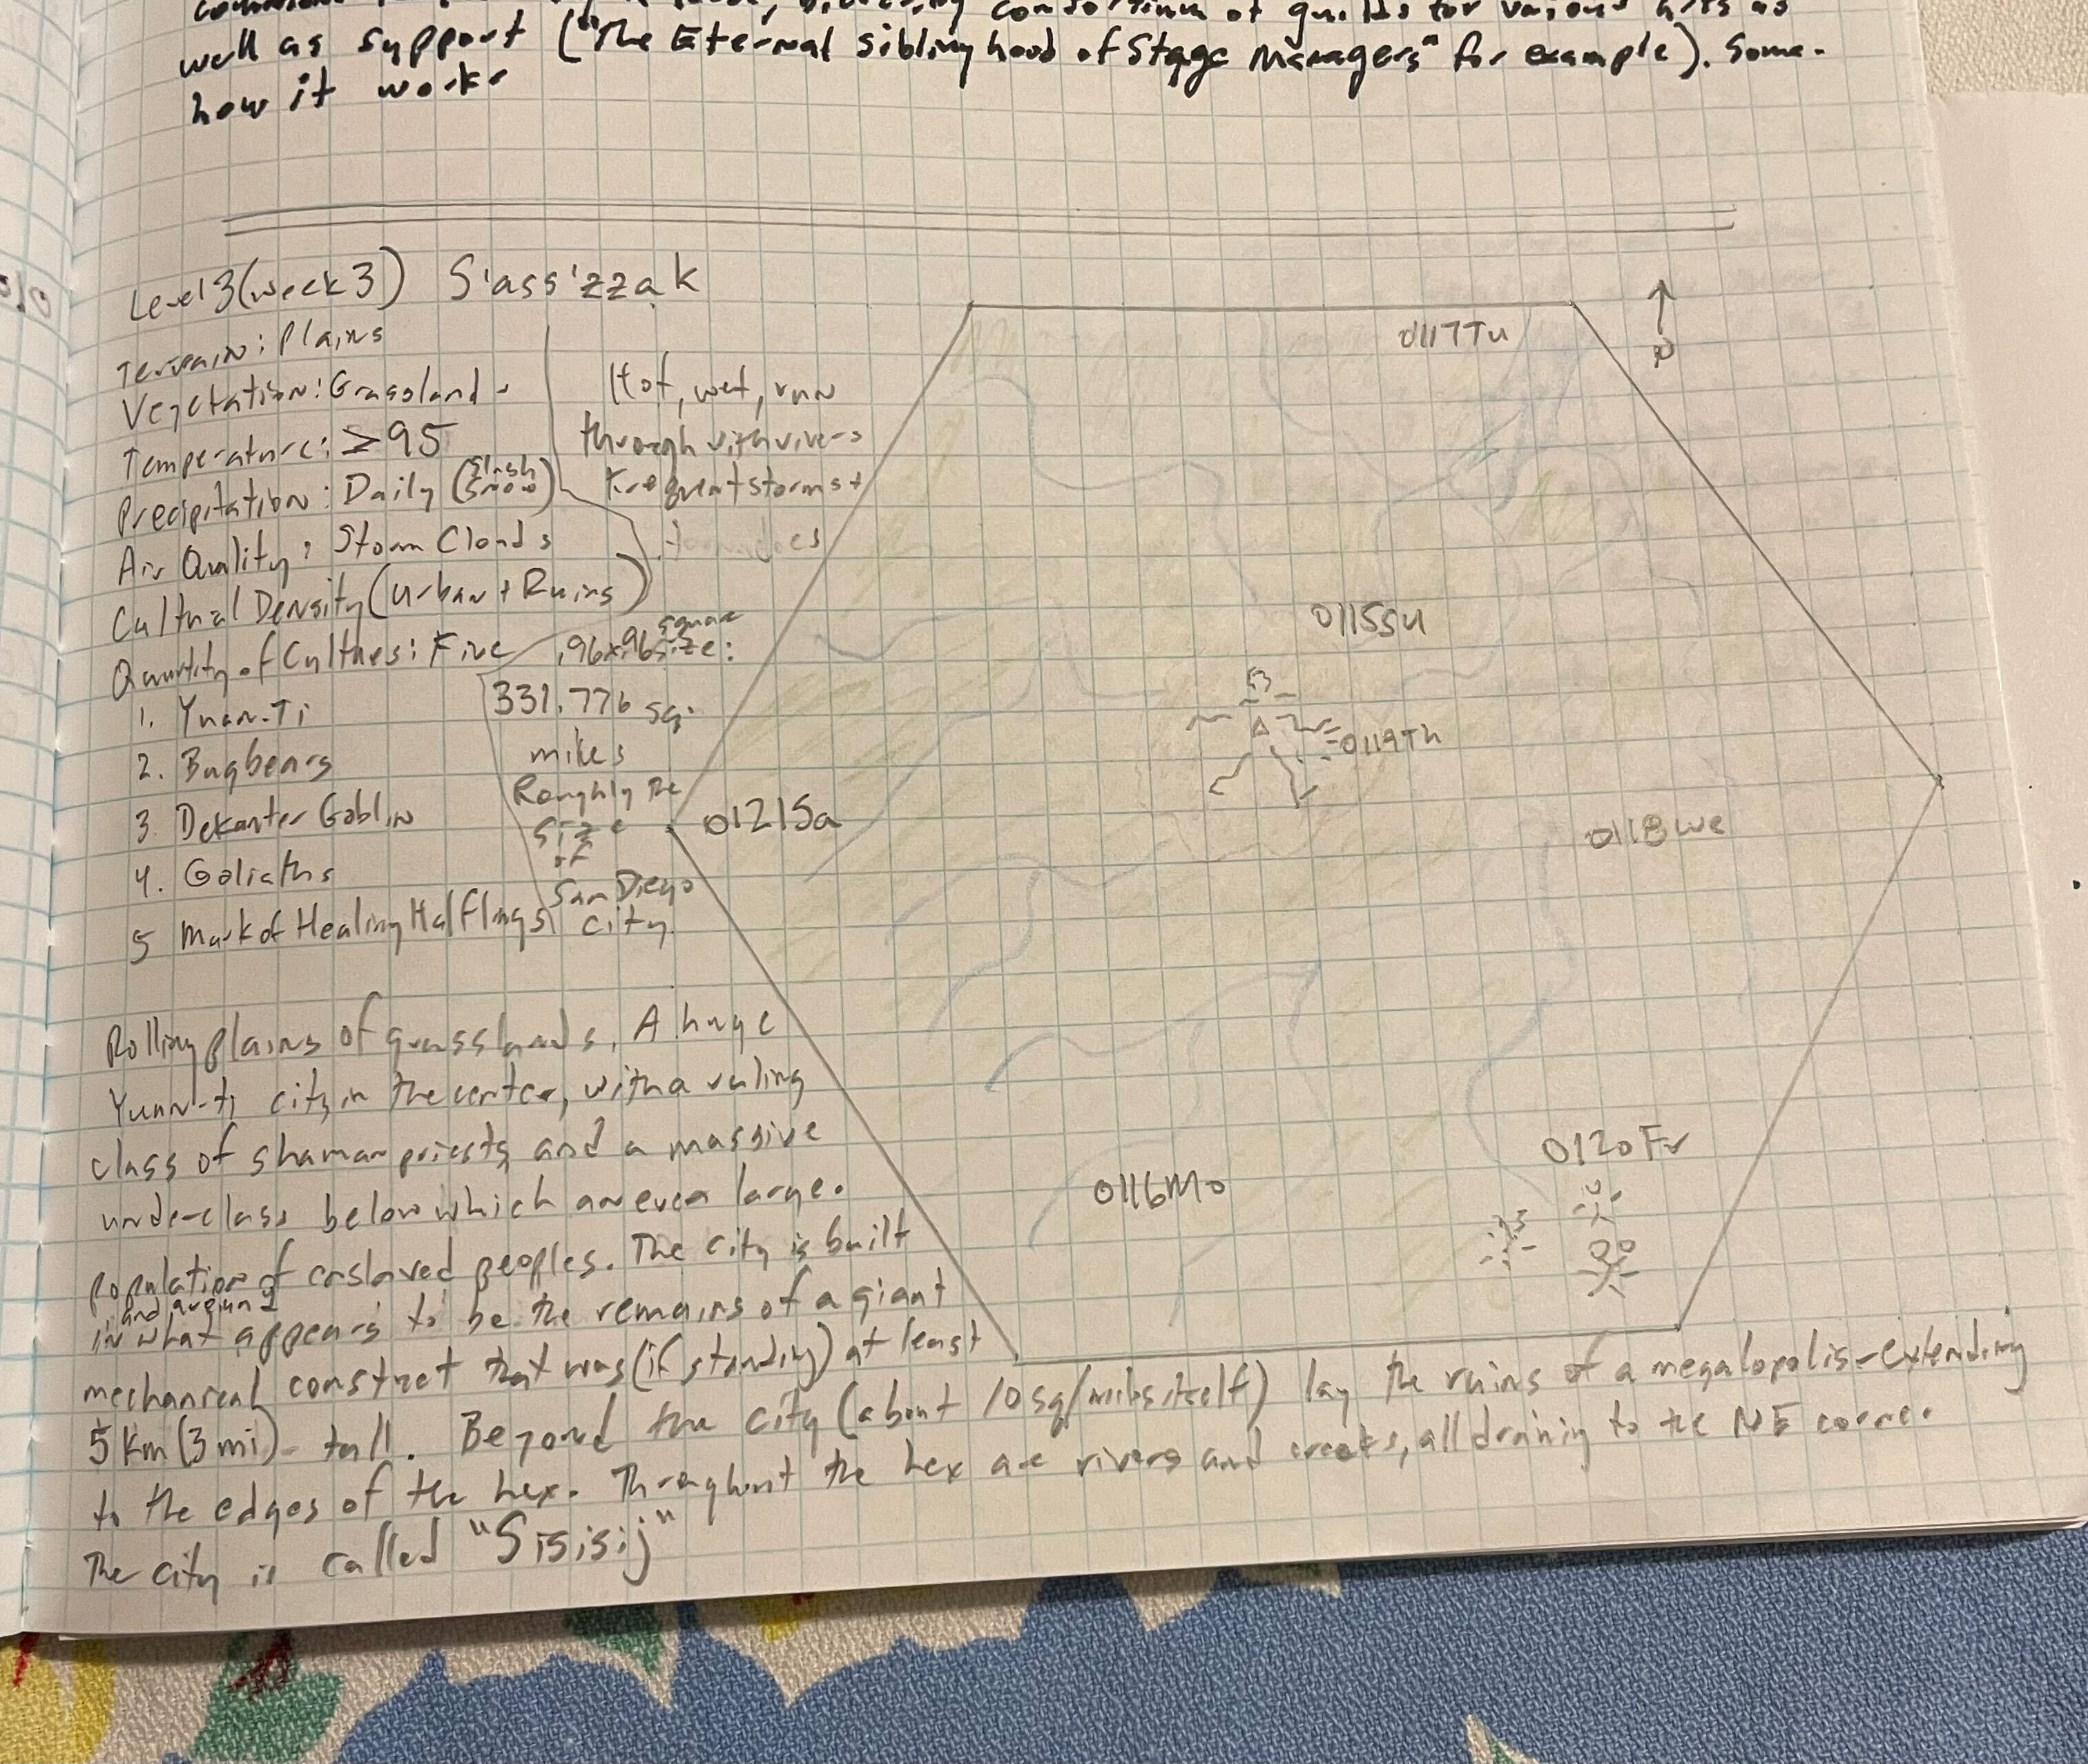 well as support ("The Eternal siblinghood of Stage Managers" for example). Some-
how it works
Level 3 (week 3) S'ass'zzak
Terrain: Plains
Vegetation: Grassland
Temperature: ≥95
Precipitation: Daily (slush snow)
Air Quality: Storm Clouds
Cultural Density (Urban + Ruins)
Quantity of Cultures: Five
1. Yuan-Ti
2. Bugbears
3. Dekanter Goblin
4. Goliaths
5 Mark of Healing Halflings
Hot, wet, run
through with rivers
frequent storms +
tornadoes
square
.96x.96 size:
331.776 sq.
miles
Roughly the
size
of
San Diego
city.
N
0117Tu
0115Su
0119Th
0121Sa
0118We
0120Fr
0116Mo
Rolling plains of grasslands. A huge
Yuan-ti city in the center, with a ruling
class of shaman priests and a massive
underclass below which an even large.
population of enslaved peoples. The city is built
and around
in what appears to be the remains of a giant
mechanical construct that was (if standing) at least
5 Km (3 mi) tall. Beyond the city (about 10 sq/miles itself) lay the ruins of a megalopolis-extending
to the edges of the hex. Throughout the hex are rivers and creeks, all draining to the NE corner
The city is called "Sisisij"